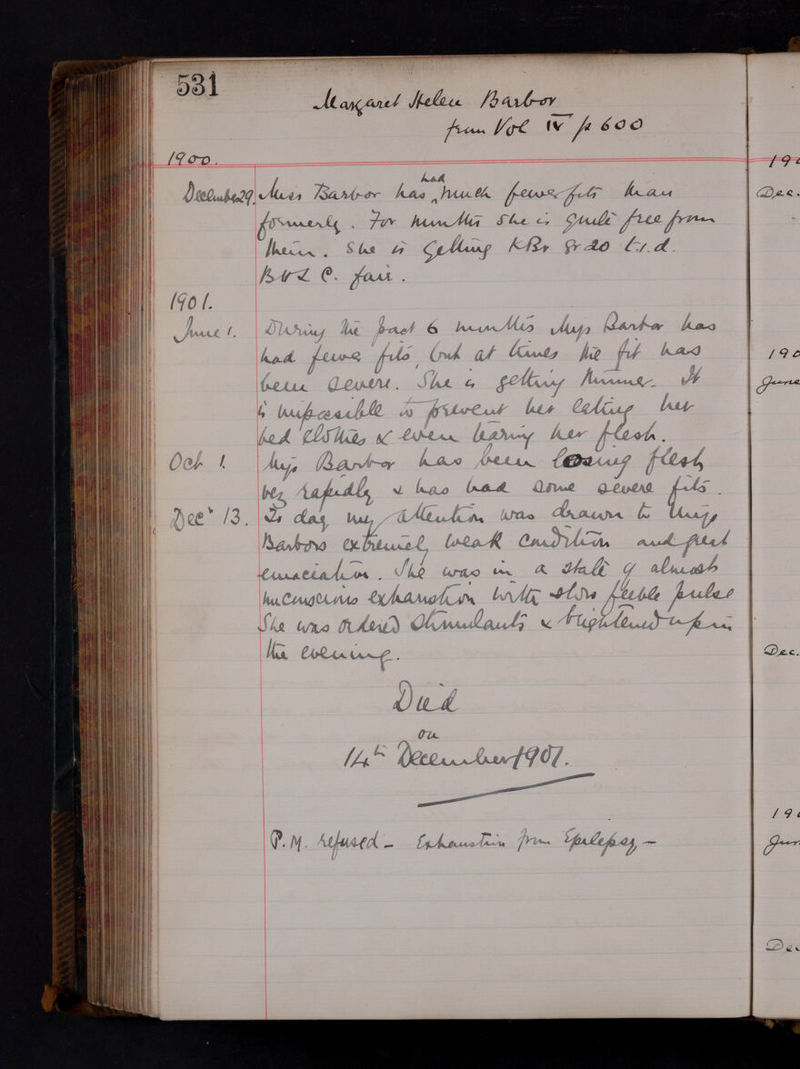 531
Margaret Helen Barbor
from Vol IV p 600
1900.
December 29. Miss Barbor has had much fewer fits than
formerly. For months she is quite free from
them. She is getting KBr gr 20 t.i.d.
B & L C. fair.
1901.
June 1. During the past 6 months Miss Barbor has
had fewer fits, but at times the fit has
been severe. She is getting thinner. It
is impossible to prevent her eating her
bed clothes & even tearing her flesh.
Oct 1. Miss Barbor has been losing flesh
very rapidly & has had some severe fits.
Decr 13. To day my attention was drawn to Miss
Barbors extremely weak condition and great
emaciation. She was in a state of almost
unconscious exhaustion with slow feeble pulse
She was ordered stimulants & brightened up in
the evening.
Died
on
14th December 1901.
P.M. refused - Exhaustion from Epilepsy -
190
Dec.
190
June
Dec.
19
Jun
Dec